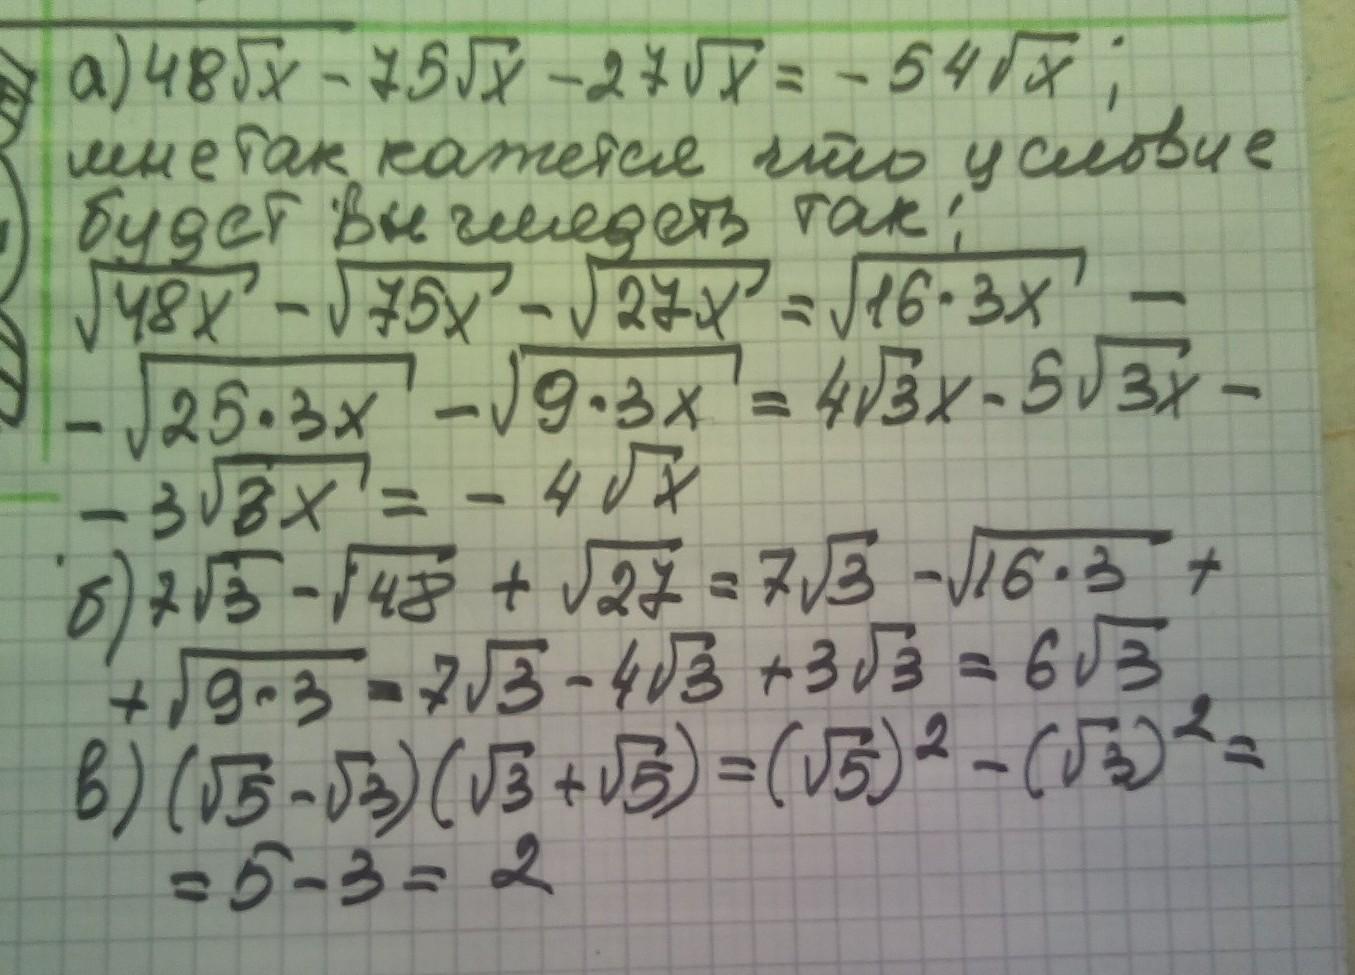 а) 48√x - 75√x - 27√x = - 54√x ;
мне так кажется что условие
будет выгледеть так:
√48x - √75x - √27x = √16·3x -
- √25·3x - √9·3x = 4√3x - 5√3x -
- 3√3x = - 4√x
б) 7√3 - √48 + √27 = 7√3 - √16·3 +
+ √9·3 = 7√3 - 4√3 + 3√3 = 6√3
в) (√5 - √3)(√3 + √5) = (√5)² - (√3)² =
= 5 - 3 = 2